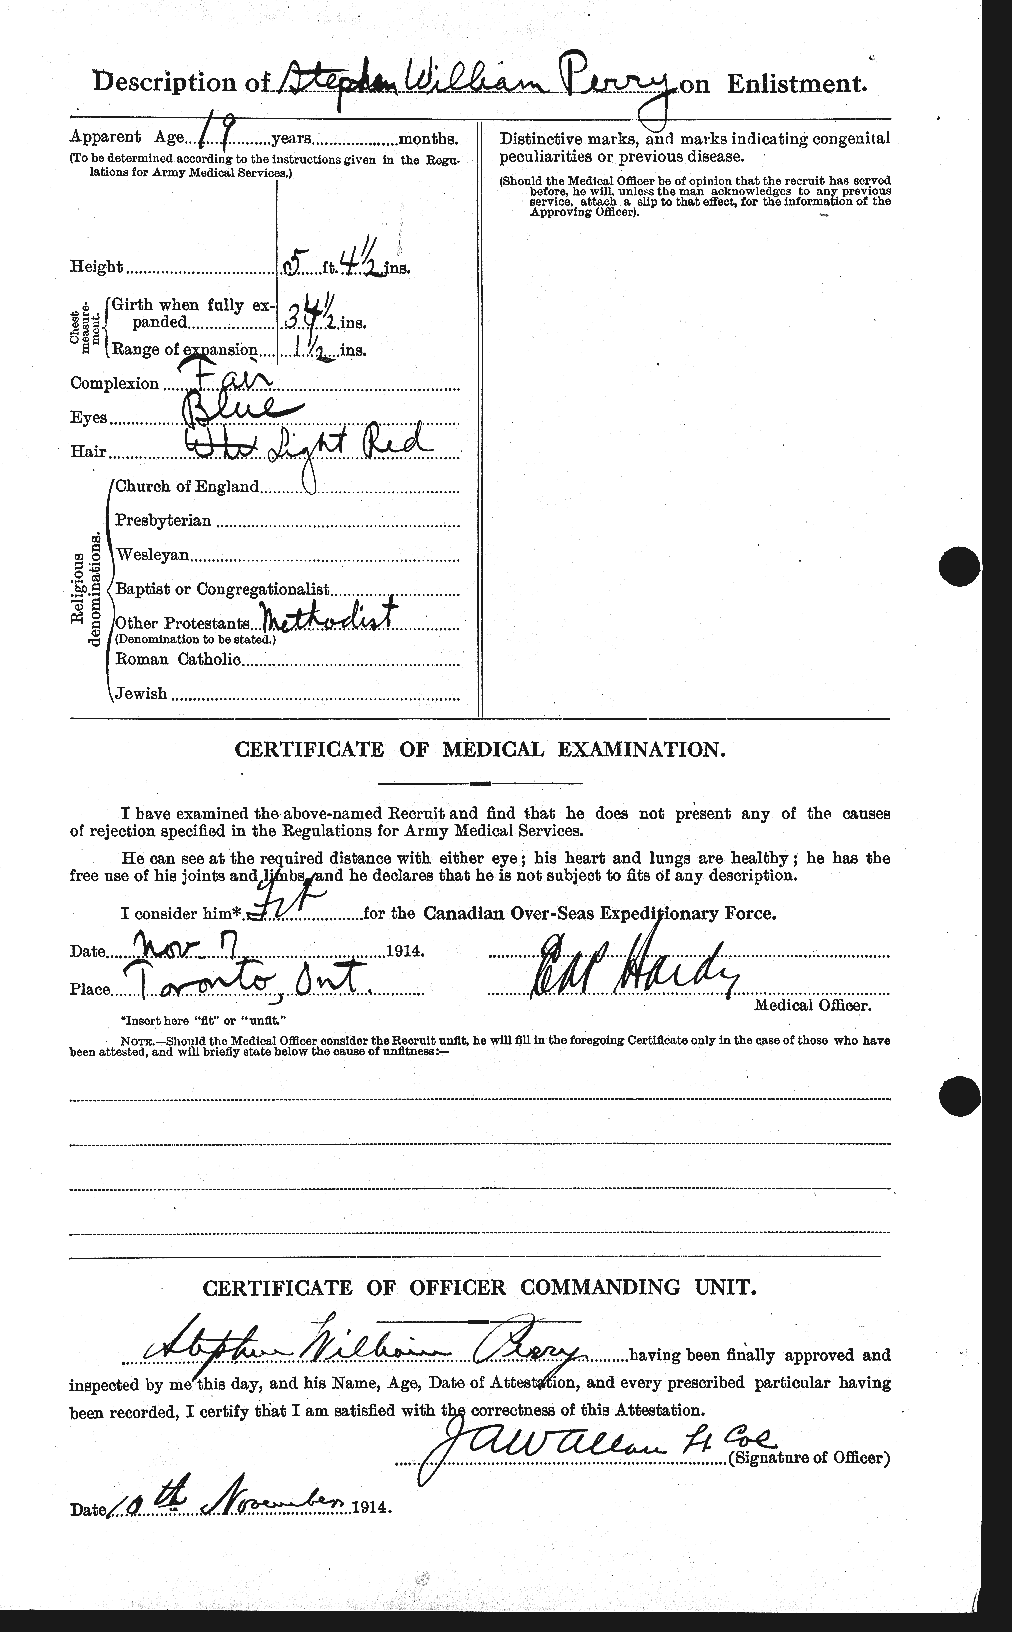 Description of Stephen William Perry on Enlistment.
Apparent Age 19 years months.
(To be determined according to the instructions given in the Regu-
lations for Army Medical Services.)
Height 5 ft. 4 1/2 ins.
Chest measure-
ment.
Girth when fully ex-
panded 34 1/2 ins.
Range of expansion 1 1/2 ins.
Complexion Fair
Eyes Blue
Hair Light Red
Religious
denominations.
Church of England
Presbyterian
Wesleyan
Baptist or Congregationalist
Other Protestants Methodist
(Denomination to be stated.)
Roman Catholic
Jewish
Distinctive marks, and marks indicating congenital
peculiarities or previous disease.
(Should the Medical Officer be of opinion that the recruit has served
before, he will, unless the man acknowledges to any previous
service, attach a slip to that effect, for the information of the
Approving Officer).
CERTIFICATE OF MEDICAL EXAMINATION.
I have examined the above-named Recruit and find that he does not present any of the causes
of rejection specified in the Regulations for Army Medical Services.
He can see at the required distance with either eye; his heart and lungs are healthy; he has the
free use of his joints and limbs, and he declares that he is not subject to fits of any description.
I consider him* Fit for the Canadian Over-Seas Expeditionary Force.
Date Nov 7 1914.
Place Toronto, Ont.
Hardy
Medical Officer.
*Insert here "fit" or "unfit."
NOTE.—Should the Medical Officer consider the Recruit unfit, he will fill in the foregoing Certificate only in the case of those who have
been attested, and will briefly state below the cause of unfitness:—
CERTIFICATE OF OFFICER COMMANDING UNIT.
Stephen William Perry having been finally approved and
inspected by me this day, and his Name, Age, Date of Attestation, and every prescribed particular having
been recorded, I certify that I am satisfied with the correctness of this Attestation.
Lt Col
(Signature of Officer)
Date 10th November 1914.